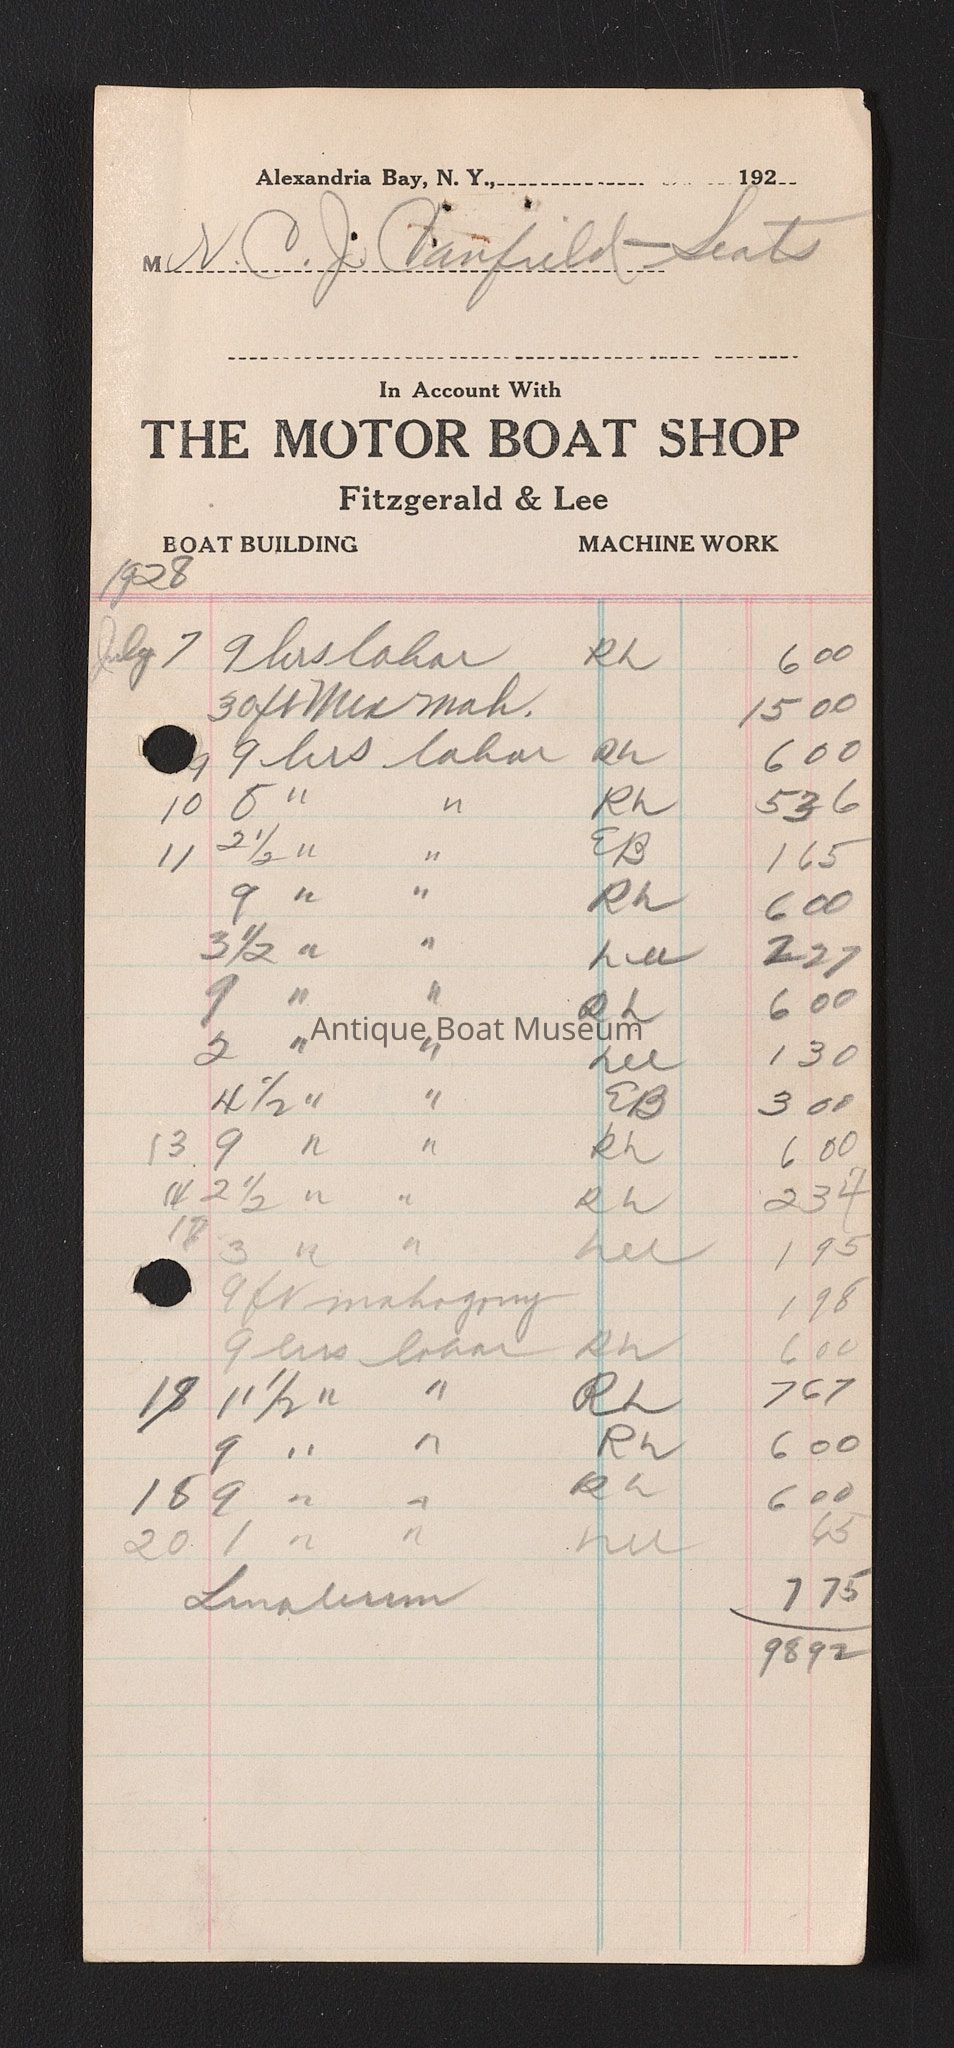 Alexandria Bay, N. Y., 192
M N. C. J. Canfield - Seats
In Account With
THE MOTOR BOAT SHOP
Fitzgerald & Lee
BOAT BUILDING MACHINE WORK
1928
July 7 9 hrs labar Rh 6 00
30ft Mex mah. 15 00
9 9 hrs labar Rh 6 00
10 " " Rh 5 36
11 2 1/2 " " EB 1 65
9 " " Rh 6 00
3 1/2 " " Lee 2 27
9 " " Rh 6 00
Antique Boat Museum
2 " " Lee 1 30
4 1/2 " " EB 3 00
13 9 " " Rh 6 00
14 2 1/2 " " Rh 2 34
18 3 " " Lee 1 95
9 ft mahogony 1 98
9 hrs labar Rh 6 00
11 1/2 " " Rh 7 67
9 " " Rh 6 00
18 9 " " Rh 6 00
20 1 " " Lee 65
Linoleum 7 75
98 92